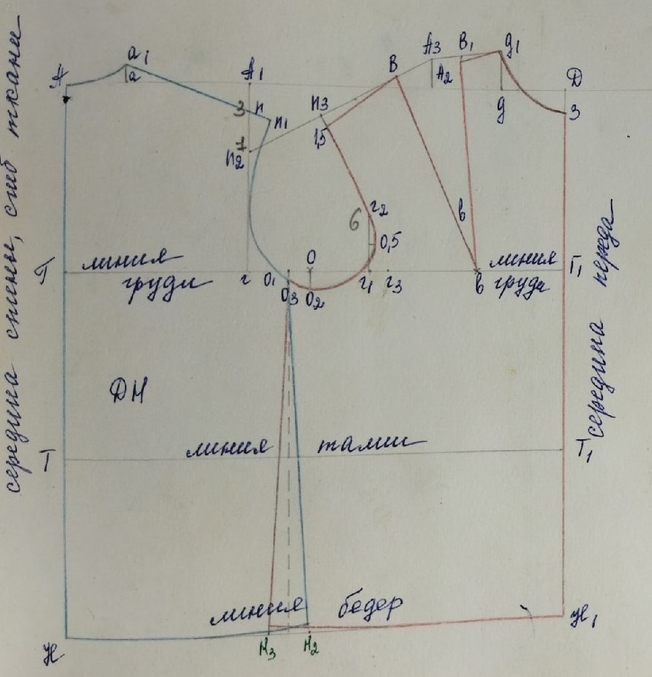 А а1 а А1 В А3 В1 А2 д1 д Д З
3 п п1 п3 1,5
1 п2
г2 6 0,5 в
середина спины, сгиб ткани
Г линия груди г О1 О О3 О2 г1 г3 в линия груди Г1
середина переда
ДН
Т линия талии Т1
линия бедер
Н Н3 Н2 Н1